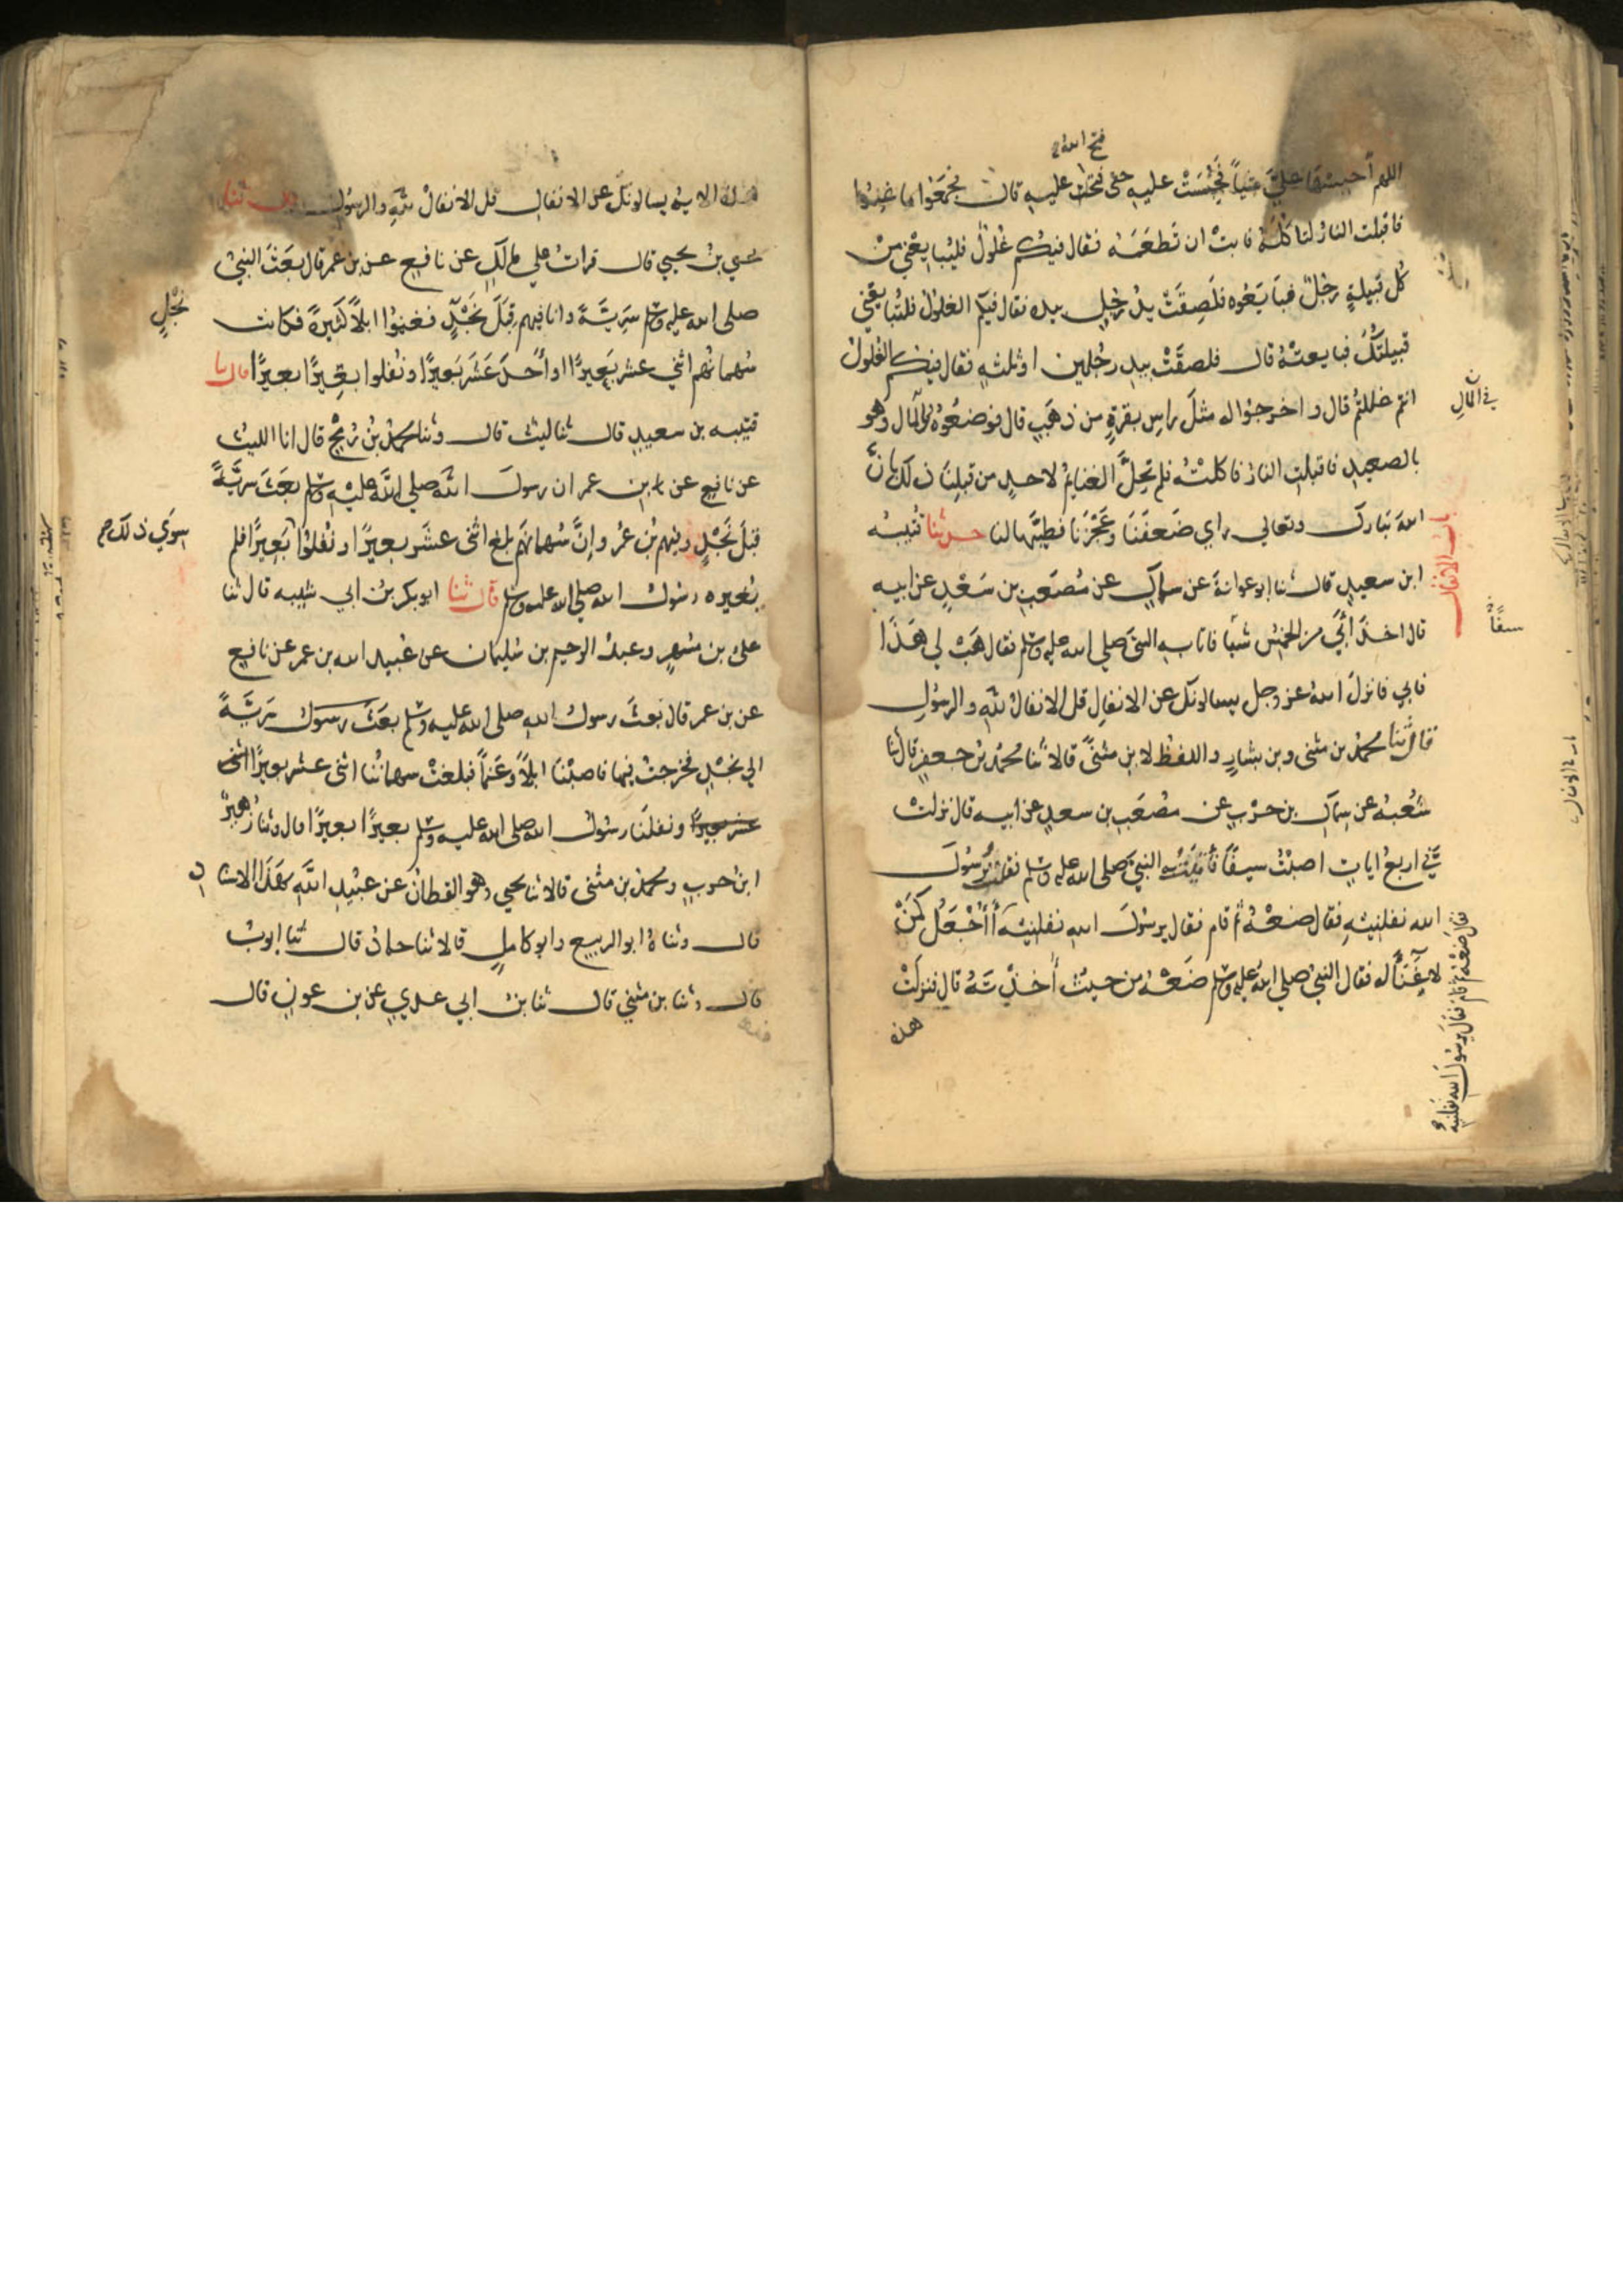 فتح الله
اللهم احبسها علي شيئا فحُبِسَتْ عليه حتى فتحت عليه قال فجمعوا ما غنموا
فاقبلت النار لتاكله فابت ان تطعمه فقال فيكم غلول فليبايعني من
كل قبيلة رجل فبايعوه فلصقت يد رجل بيده فقال فيكم الغلول فلتبايعني
قبيلتك فبايعته قال فلصقت بيد رجلين او ثلثه فقال فيكم الغلول
انتم غللتم قال واخرجوا له مثل راس بقرة من ذهب قال فوضعوه بالمال وهو
في المال
بالصعيد فاقبلت النار فاكلته فلم تحل الغنايم لاحد من قبلنا ذلك بان
الله تبارك وتعالى راى ضعفنا وعجزنا فطيبها لنا حدثنا قتيبه
باب الانفال
ابن سعيد قال ثنا ابو عوانة عن سماك عن مصعب بن سعد عن ابيه
قال اخذ ابي من الخمس شيئا فاتا به النبي صلى الله عليه وسلم فقال هب لي هذا
سيفًا
فابى فانزل الله عز وجل يسالونك عن الانفال قل الانفال لله والرسول
قال ثنا محمد بن مثنى وبن بشار واللفظ لابن مثنى قالا ثنا محمد بن جعفر قال ثنا
شعبه عن سماك بن حرب عن مصعب بن سعد عن ابيه قال نزلت
في اربع ايات اصبت سيفا فأتيت به النبي صلى الله عليه وسلم فقلت يرسول
الله نفلنيه فقال ضعه ثم قام فقال يرسول الله نفلنيه أأجعل كمن
لا غناً له فقال النبي صلى الله عليه وسلم ضعه من حيث اخذته قال فنزلت
فقال ضعه ثم قام فقال يرسول الله نفلنيه
هذه
هذه الايه يسالونك عن الانفال قل الانفال لله والرسول قال ثنا
يحيي بن يحيي قال قرات على ملك عن نافع عن بن عمر قال بعث النبي
صلى الله عليه وسلم سرية وانا فيهم قبل نجد فغنموا ابلا كثيرة فكانت
نجدٍ
سهمانهم اثني عشر بعيرًا او أحد عشر بعيرًا ونفلوا بعيرًا بعيرًا قال نا
قتيبه بن سعيد قال ثنا ليث قال وثنا محمد بن رمح قال انا الليث
عن نافع عن ابن عمر ان رسول الله صلى الله عليه وسلم بعث سرية
قبل نجد وفيهم بن عمر وإن سهمانهم بلغ اثنى عشر بعيرًا ونفلوا بعيرًا فلم
سوى ذلك
يغيره رسول الله صلى الله عليه وسلم قال ثنا ابو بكر بن ابي شيبه قال ثنا
علي بن مسهر وعبد الرحيم بن سليمان عن عبيد الله بن عمر عن نافع
عن بن عمر قال بعث رسول الله صلى الله عليه وسلم بعث رسول سرية
الي نجد فخرجت فيها فاصبنا ابلا وغنما فبلغت سهماننا اثنى عشر بعيرًا اثنى
عشر بعيرًا ونفلنا رسول الله صلى الله عليه وسلم بعيرًا بعيرًا قال وثنا زهير
ابن حرب ومحمد بن مثنى قالا ثنا يحيي وهو القطان عن عبيد الله بهذا الاسنا
د
قال وثناه ابو الربيع وابو كامل قالا ثنا حماد قال ثنا ايوب
قال وثنا بن مثنى قال ثنا بن ابي عدي عن بن عون قال